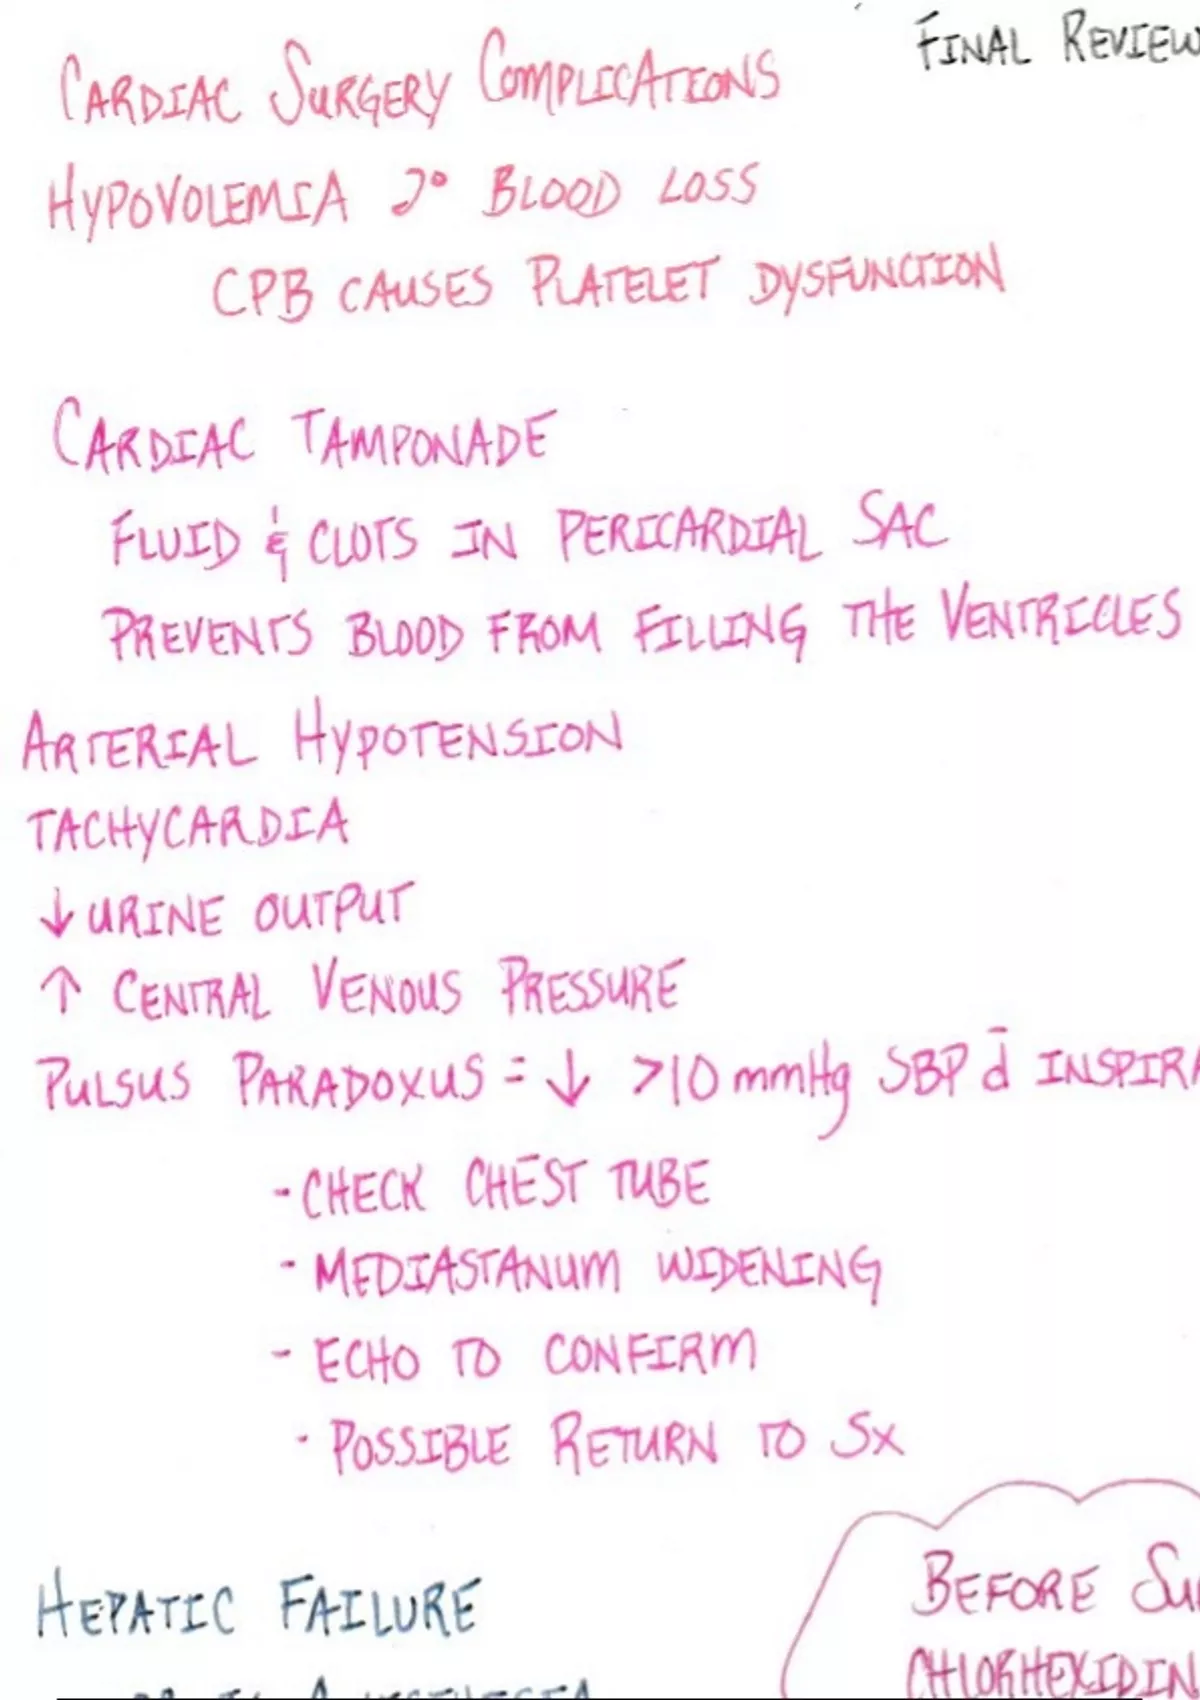 FINAL REVIEW
CARDIAC SURGERY COMPLICATIONS
HYPOVOLEMIA 2° BLOOD LOSS
CPB CAUSES PLATELET DYSFUNCTION
CARDIAC TAMPONADE
FLUID & CLOTS IN PERICARDIAL SAC
PREVENTS BLOOD FROM FILLING THE VENTRICLES
ARTERIAL HYPOTENSION
TACHYCARDIA
↓ URINE OUTPUT
↑ CENTRAL VENOUS PRESSURE
PULSUS PARADOXUS = ↓ >10 mmHg SBP d̄ INSPIRA
- CHECK CHEST TUBE
- MEDIASTANUM WIDENING
- ECHO TO CONFIRM
- POSSIBLE RETURN TO Sx
HEPATIC FAILURE
BEFORE SU
CHLORHEXIDIN